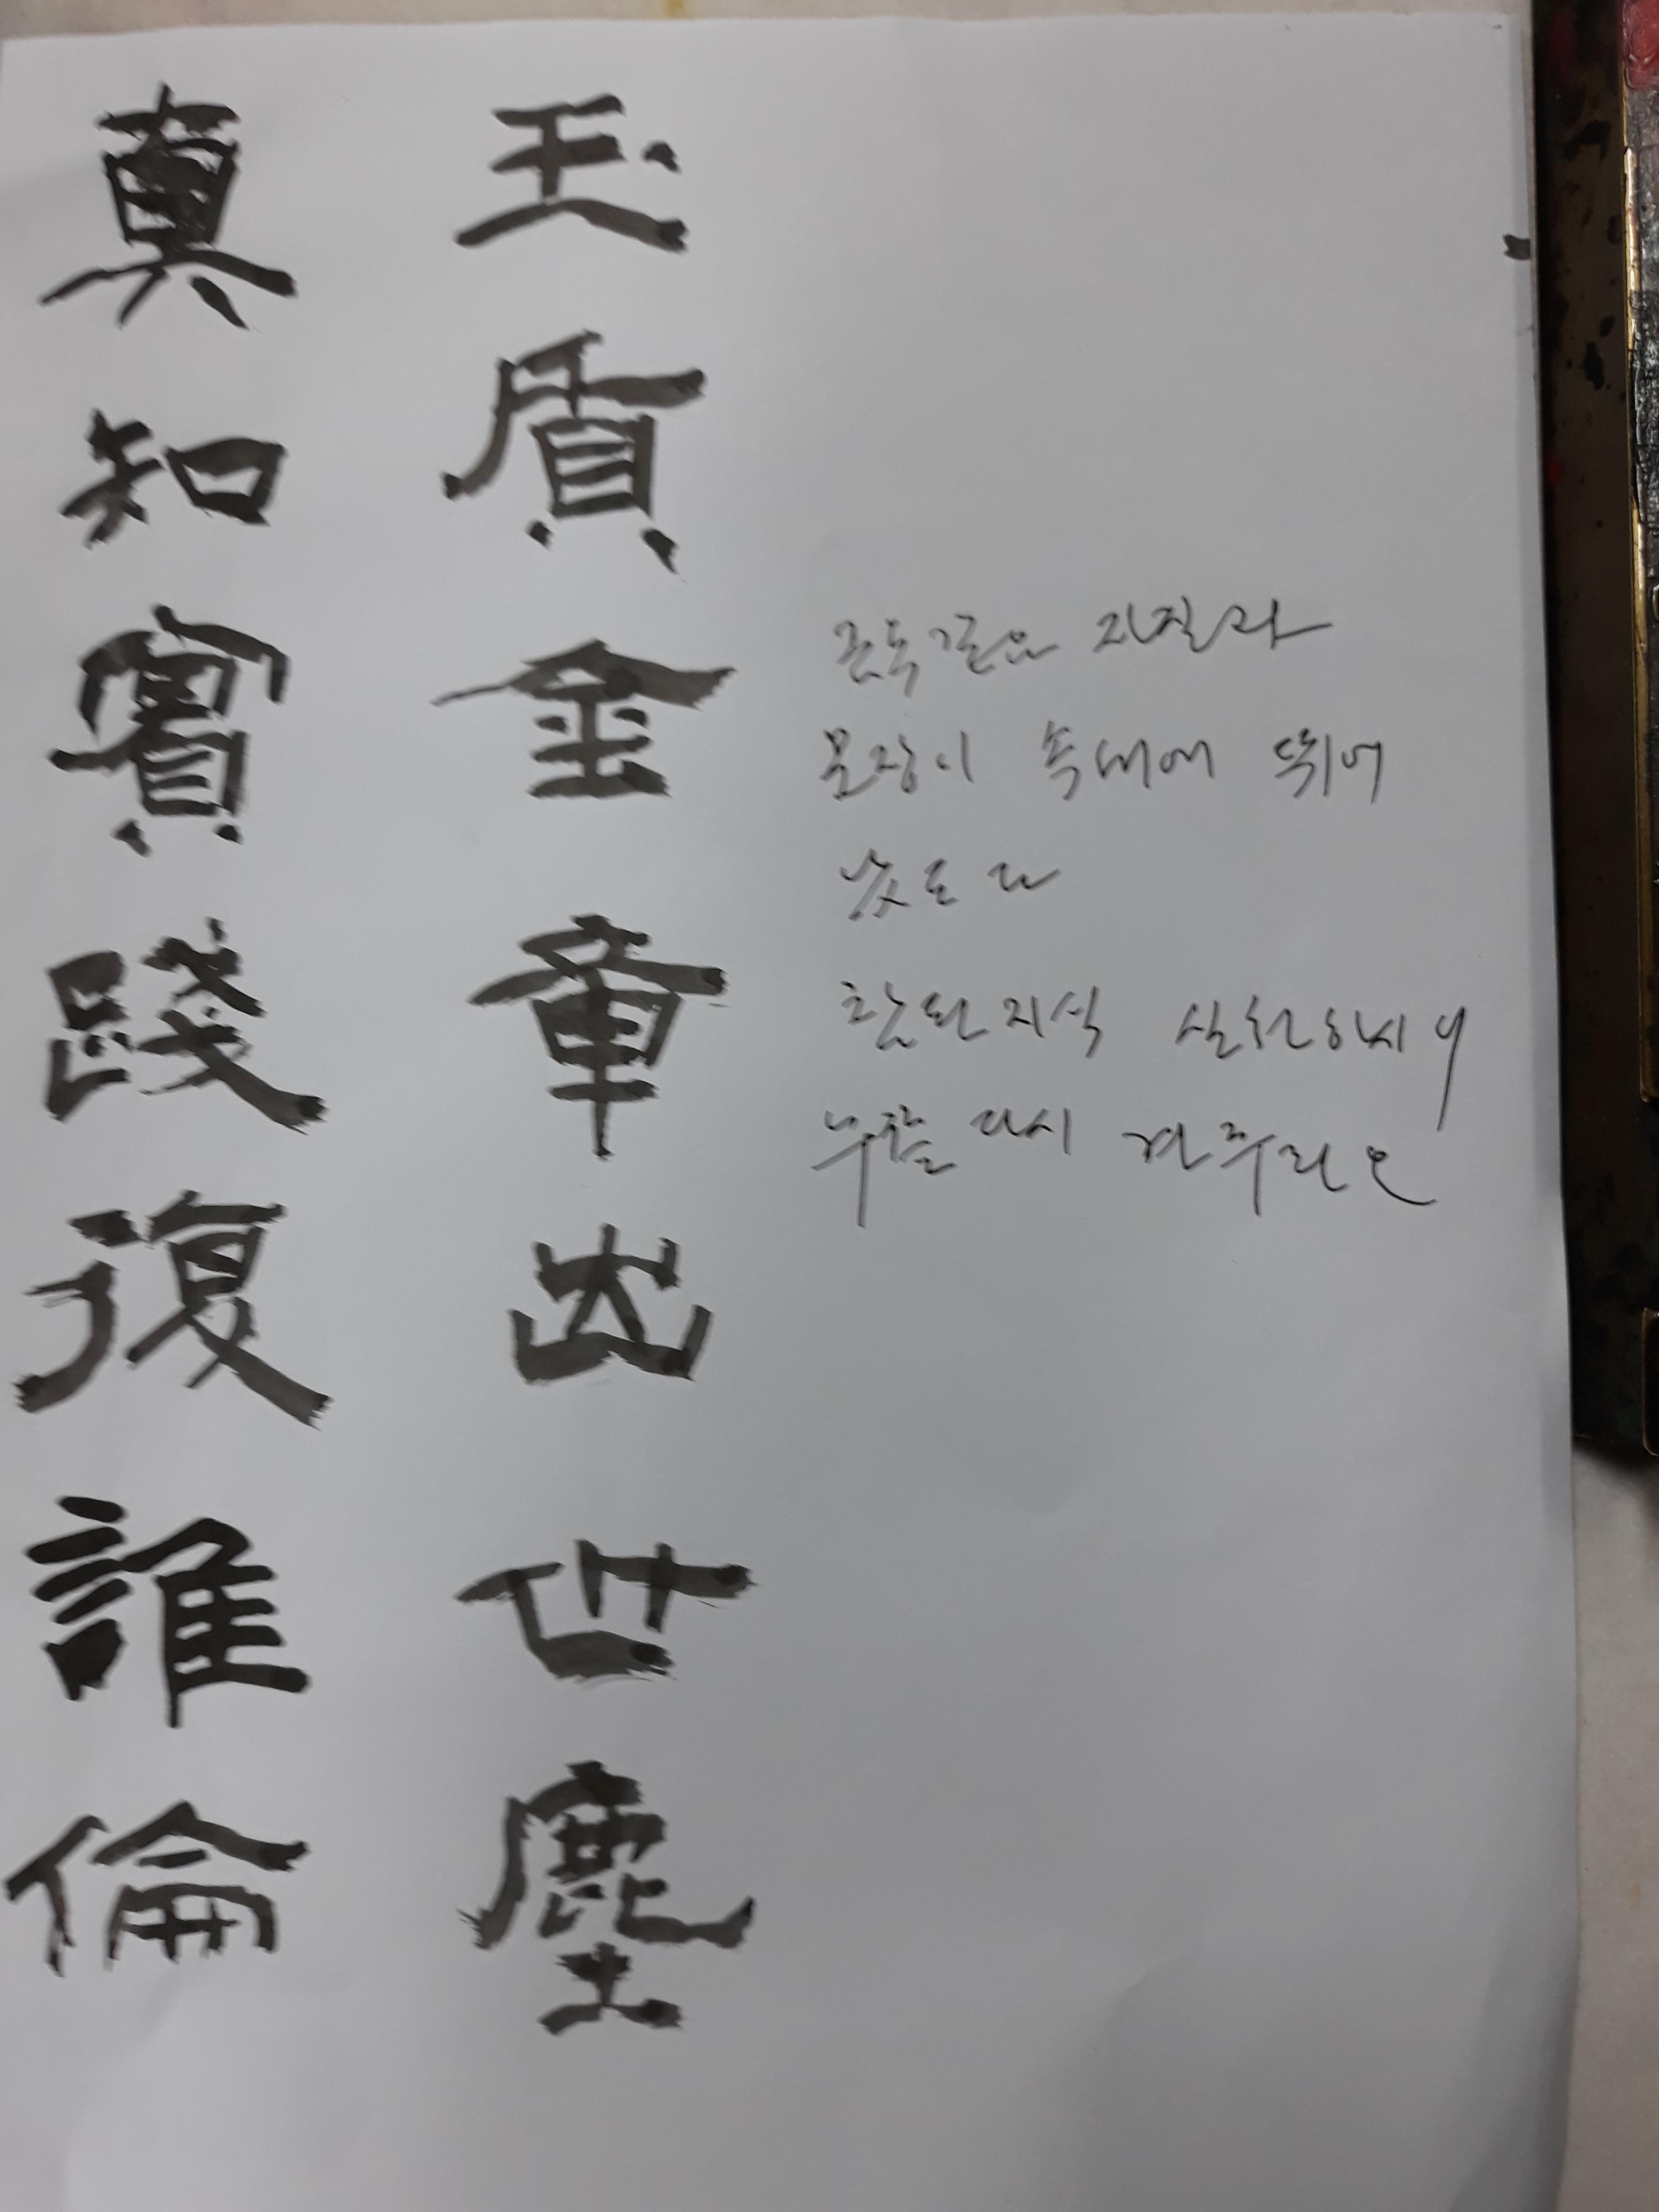 玉貭金章出世塵
真知實踐復誰倫
금옥같은 자질과
문장이 속세에 뛰어
났도다
참된지식 실천하시니
다시 견주리오